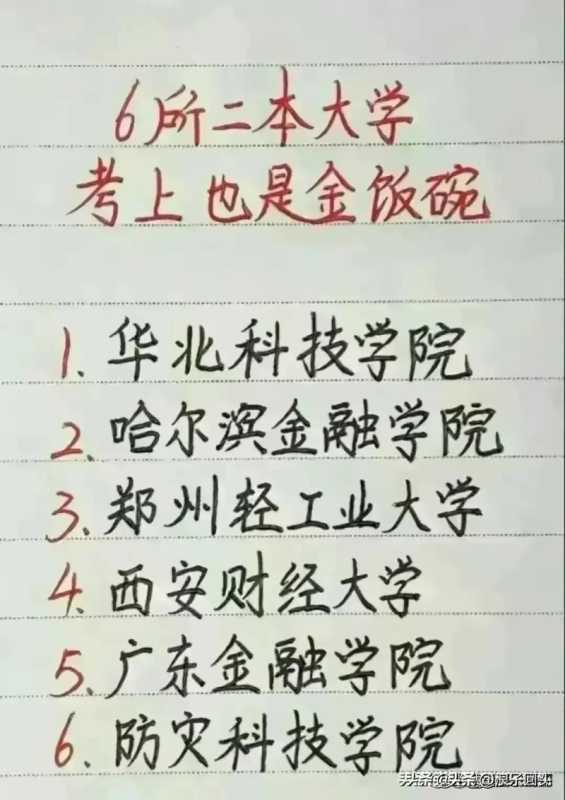 6所二本大学
考上也是金饭碗
1.华北科技学院
2.哈尔滨金融学院
3.郑州轻工业大学
4.西安财经大学
5.广东金融学院
6.防灾科技学院